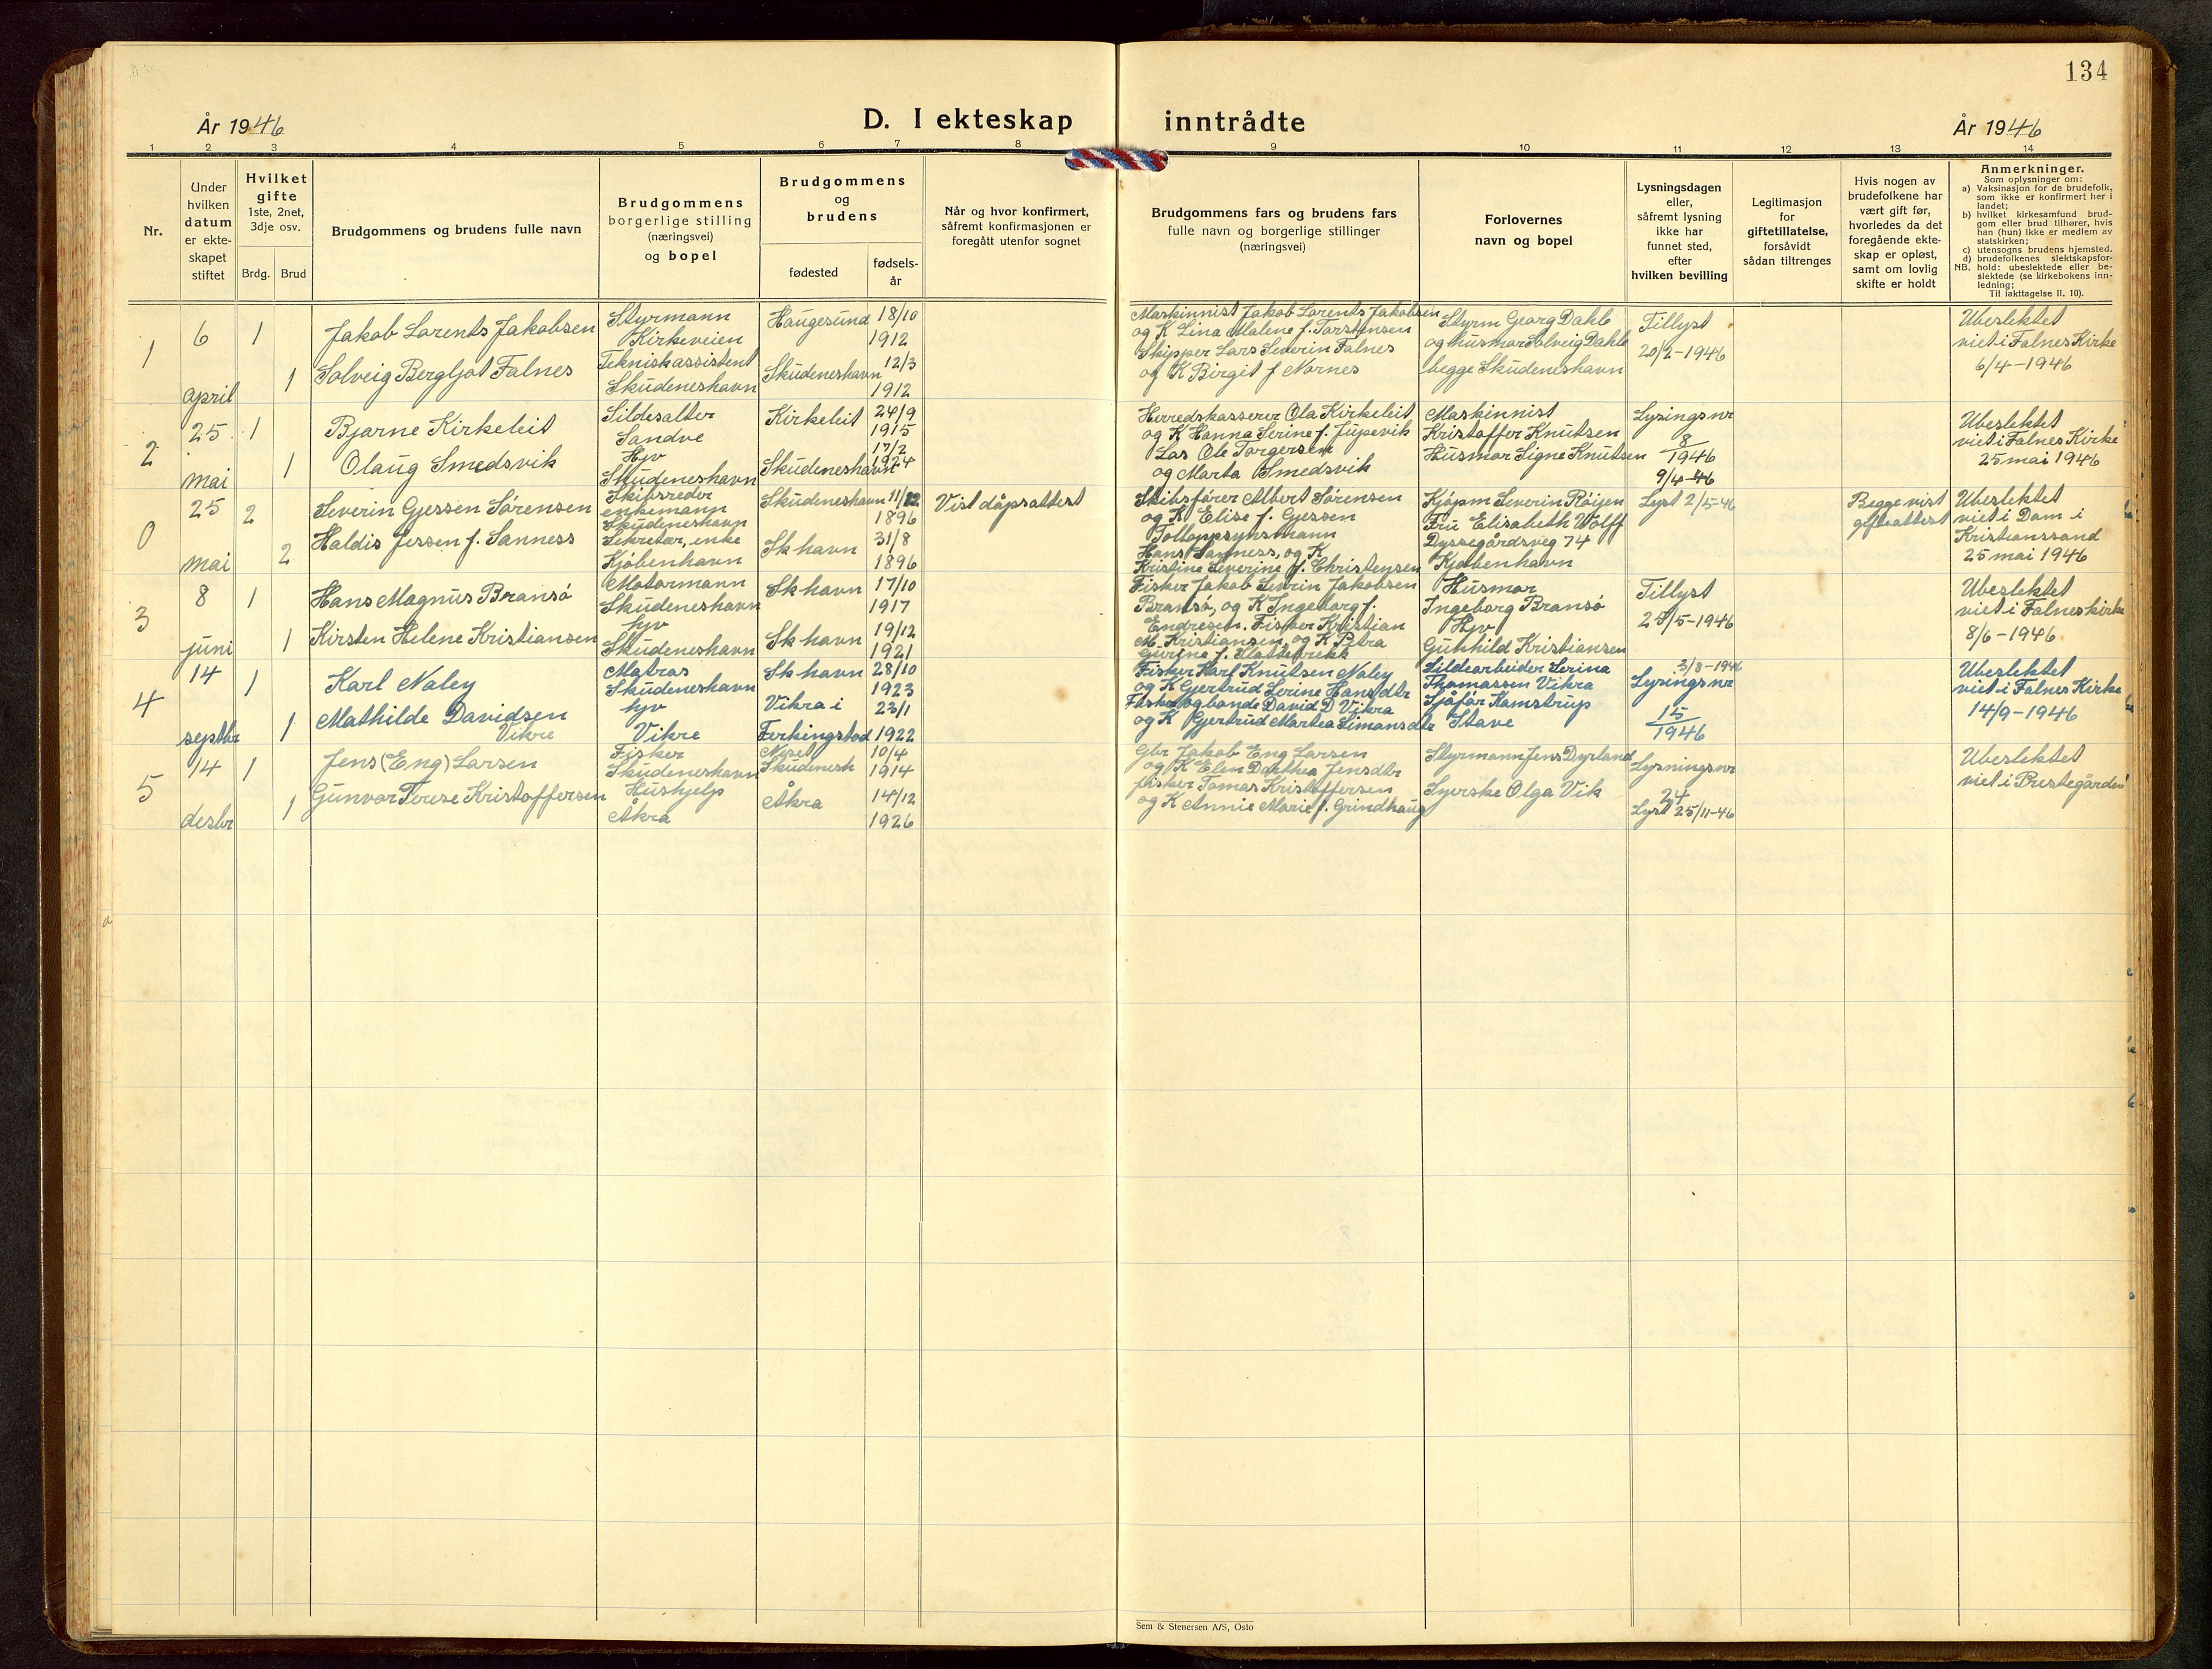 134
År 1946
D. I ekteskap inntrådte
År 1946
1 2 3 4 5 6 7 8 9 10 11 12 13 14
Nr.
Under
hvilken
datum
er ekte-
skapet
stiftet
Hvilket
gifte
1ste, 2net,
3dje osv.
Brdg. Brud
Brudgommens og brudens fulle navn
Brudgommens
borgerlige stilling
(næringsvei)
og bopel
Brudgommens
og
brudens
fødested
fødsels-
år
Når og hvor konfirmert,
såfremt konfirmasjonen er
foregått utenfor sognet
Brudgommens fars og brudens fars
fulle navn og borgerlige stillinger
(næringsvei)
Forlovernes
navn og bopel
Lysningsdagen
eller,
såfremt lysning
ikke har
funnet sted,
efter
hvilken bevilling
Legitimasjon
for
giftetillatelse,
forsåvidt
sådan tiltrenges
Hvis nogen av
brudefolkene har
vært gift før,
hvorledes da det
foregående ekte-
skap er opløst,
samt om lovlig
skifte er holdt
Anmerkninger.
Som oplysninger om:
a) Vaksinasjon for de brudefolk,
som ikke er konfirmert her i
landet;
b) hvilket kirkesamfund brud-
gom eller brud tilhører, hvis
han (hun) ikke er medlem av
statskirken;
c) utensogns brudens hjemsted.
d) brudefolkenes slektskapsfor-
NB. hold: ubeslektede eller be-
slektede (se kirkebokens inn-
ledning;
Til iakttagelse II. 10).
1
6
april
1
1
Jakob Lorents Jakobsen
Solveig Bergljot Falnes
Styrmann
Kirkeveien
Teknisk assistent
Skudeneshavn
Haugesund
Skudeneshavn
18/10
1912
12/3
1912
Maskinnist Jakob Lorents Jakobsen
og K Lina Malene f. Torstensen
Skipper Lars Severin Falnes
og K Birgit f Nornes
Styrm Georg Dahle
og husmor Solveig Dahle
begge Skudeneshavn
Tillyst
20/2-1946
Ubeslektet
viet i Falnes Kirke
6/4-1946
2
25
mai
1
1
Bjarne Kirkeleit
Olaug Smedsvik
Sildesalter
Sandve
Hjv
Skudeneshavn
Kirkeleit
Skudeneshavn
24/9
1915
17/2
1924
Herredskasserer Ola Kirkeleit
og K Hanna Serine f. Jupevik
Los Ole Torgersen
og Marta Smedsvik
Maskinnist
Kristoffer Knutsen
Husmor Signe Knutsen
Lysings nr
8
1946
9/4-46
Ubeslektet
viet i Falnes Kirke
25 mai 1946
0
25
mai
2
2
Severin Gjessen Sørensen
Haldis Jessen f. Sanness
Skibsreder
enkemann
Skudeneshavn
Sekretær, enke
Kjøbenhavn
Skudeneshavn
Sk havn
11/12
1896
31/8
1896
Vist dåpsattest
Skibsfører Albert Sørensen
og K Elise f. Gjessen
Tolloppsynsmann
Hans Sanness, og K
Kristine Severine f. Christensen
Kjøpm Severin Röijen
Fru Elisabeth Wolff
Dyssegårdsveg 74
Kjøbenhavn
Lyst 2/5-46
Begge vist
giftvattest
Ubeslektet
viet i Dom i
Kristianssand
25 mai 1946
3
8
juni
1
1
Hans Magnus Bransø
Kirsten Helene Kristiansen
Motormann
Skudeneshavn
hjv
Skudeneshavn
Sk havn
Sk havn
17/10
1917
19/12
1921
Fisker Jakob Severin Jakobsen
Bransø, og K Ingeborg f.
Endresen. Fisker Kristian
M. Kristiansen og K Petra
Gurine f.
Husmor
Ingeborg Bransø
Hjv
Gunhild Kristiansen
Tillyst
25/5-1946
Ubeslektet
viet i Falnes kirke
8/6-1946
4
14
septbr
1
1
Karl Naley
Mathilde Davidsen
Vikre
Matros
Skudeneshavn
hjv
Vikre
Sk havn
Vikra i
Ferkingstad
28/10
1923
23/1
1922
Fisker Karl Knutsen Naley
og K Gjertrud Serine Hansdtr
Fisker og bonde David D Vikra
og K Gjertrud Martea Simonsdtr
Sildearbeider Serina
Thomassen Vikra
Sjåfør Kamstrup
Stave
3/8-1946
Lysings nr
15
1946
Ubeslektet
viet i Falnes Kirke
14/9-1946
5
14
desbr
1
1
Jens (Eng) Larsen
Gunvor Terese Kristoffersen
Fisker
Skudeneshavn
Hushjelp
Åkra
Neset
Skudenesh
Åkra
10/4
1914
14/12
1926
Gbr Jakob Eng Larsen
og K Elen Dorthea Jensdtr
fisker Tomas Kristoffersen
og K Annie Marie f. Grindhaug
Styrmann Jens Dyrland
Syerske Olga Vik
Lysningsnr
24
Lyst 25/11-46
Ubeslektet
viet i Prestegården
Sem & Stenersen A/S, Oslo